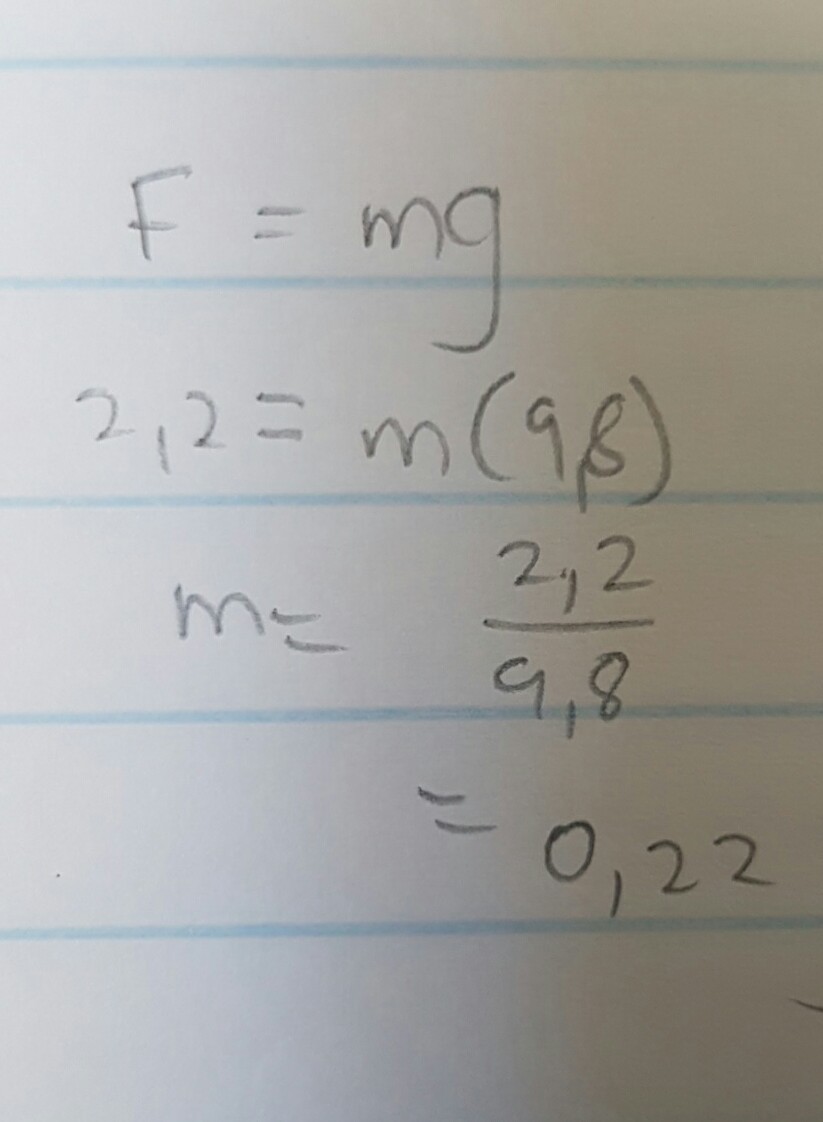 F = mg
2,2 = m(9,8)
m = 2,2/9,8
= 0,22